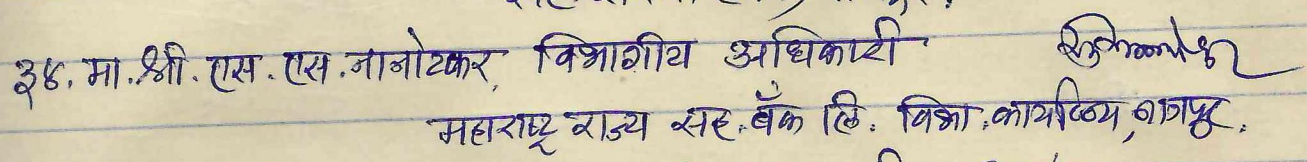 ३४. मा. श्री. एस. एस. नानोटकर, विभागीय अधिकारी
महाराष्ट्र राज्य सह. बँक लि. विभा. कार्यालय, नागपूर.